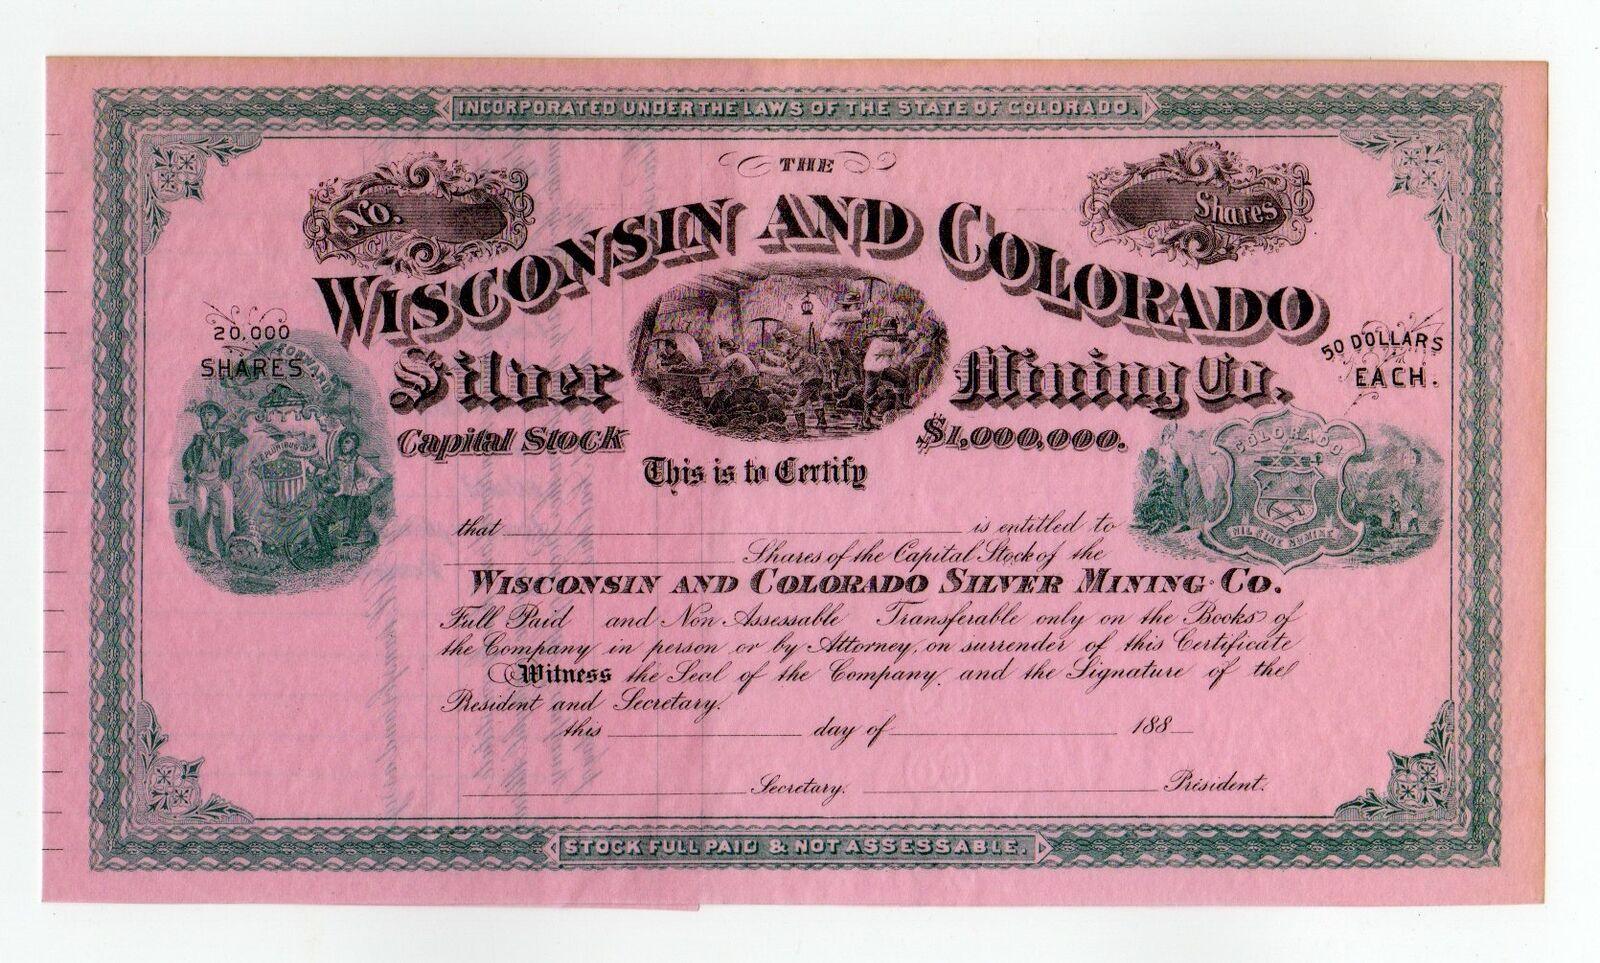 INCORPORATED UNDER THE LAWS OF THE STATE OF COLORADO.
THE
No.
Shares
WISCONSIN AND COLORADO
Silver Mining Co.
20,000
SHARES
50 DOLLARS
EACH.
FORWARD
E PLURIBUS UNUM
Capital Stock $1,000,000.
COLORADO
NIL SINE NUMINE
This is to Certify
that is entitled to
Shares of the Capital Stock of the
WISCONSIN AND COLORADO SILVER MINING CO.
Full Paid and Non Assessable Transferable only on the Books of
the Company in person or by Attorney, on surrender of this Certificate
Witness the Seal of the Company, and the Signature of the
President and Secretary.
this day of 188
Secretary. President.
STOCK FULL PAID & NOT ASSESSABLE.